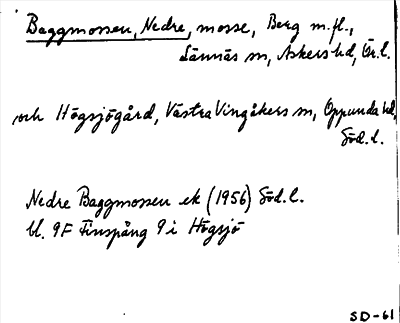 Baggmossen, Nedre, mosse, Berg m.fl.,
Lännäs sn, Askers hd, Ör.l.
och Högsjögård, Västra Vingåkers sn, Oppunda hd,
Söd.l.
Nedre Baggmossen ek (1956) Söd.l.
bl. 9F Finspång 9i Högsjö
SD-61